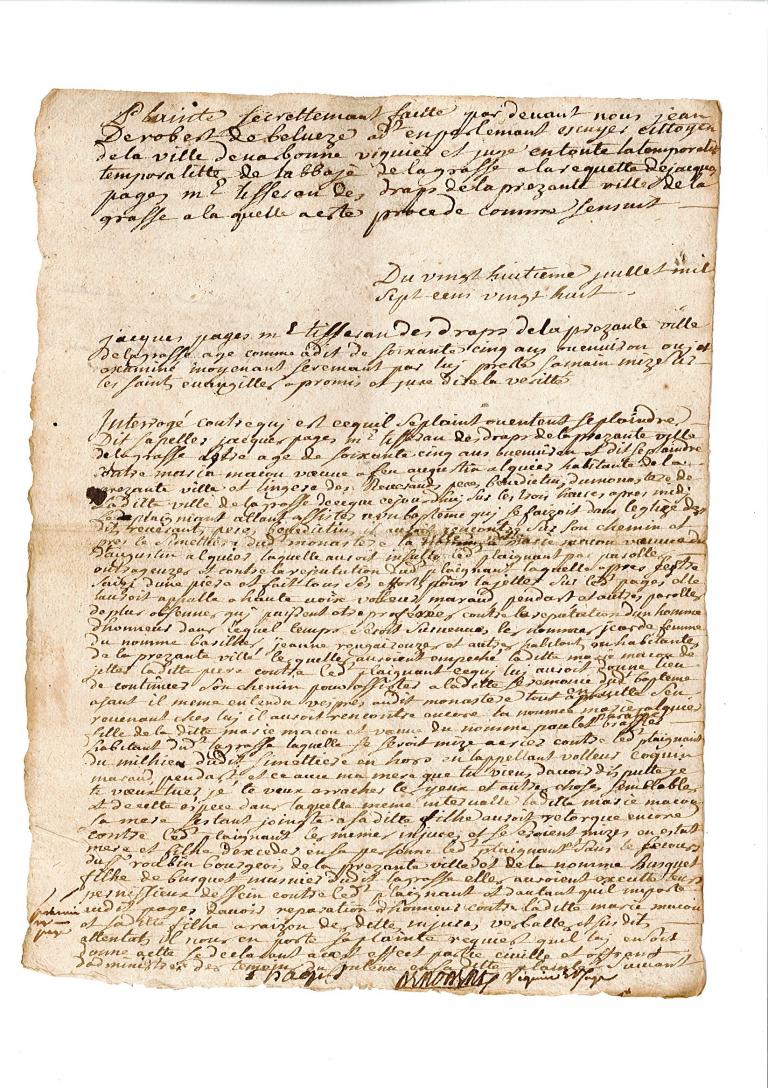 Plainte secrettemant faite par devant nous jean
Derobert de belveze adt en parlemant escuyer cittoyen
de la ville de narbonne viguier et juge en toute la temporalit
temporalitte de labbaye de lagrasse a la requette de jacques
pages me tisseran des draps de la prezante ville de la
grasse a la quelle a este procede comme sensuit
Du vingt huitieme juillet mil
sept cens vingt huit
jacques pages me tisseran des draps de la prezante ville
de lagrasse age comme a dit de soixante cinq ans ou environ ouy et
examine moyenant seremant par luy preste sa main mize sur
les saints evangilles a promis et jure dire la veritte
Interrogé contre qui est ce quil se plaint ou entent se plaindre
Dit sapeller jacques pages me tisseran de draps de la prezante ville
de la grasse estre age de soixante cinq ans ou environ et dit se plaindre
contre marie macou veuve a feu augustin alquier habitante de la
prezante ville et lingere des Reverends peres benedictins du monastere de
ladite ville de la grasse de ce que cejourdhuy sur les trois heures apres midi
led plaignant allant assister a un bapteme qui se faizoit dans leglize des
dits reverans peres benedictins et auroit rencontre sur son chemin et
pres le simettiere dud monastere la marie macou veuve du
daugustin alquier laquelle auroit insulte led plaignant par parolles
outrageuzes et contre la reputation dud plaignant laquelle apres sestre
saizy dune piere et fait tous ses efforts pour la jetter sur led pages elle
lauroit appelle a haute voix volleur maraud pendart et autres parolles
de plus infames qui puissent etre proferees contre la reputation dun homme
dhonneur dans lequel temps seroit survenue les nommes jearde femme
du nomme basille jeanne rougairouzes et autres habitans ou habitantes
de la prezante ville lesquelles auroient empeche ladite marie macou de
jetter ladite piere contre led plaignant ce qui luy auroit donne lieu
de continuer son chemin pour assister a ladite seremonie dud bapteme
ayant il meme entendu vespres audit monastere et tout ensuitte sen
revenant chez luy il auroit rencontre encore la nommee marie alquier
fille de la ditte marie macou et veuve du nomme paulet
habitant dud lagrasse laquelle se seroit mize a crier contre led plaignant
du milhieu dudit simettiere en hors en lappellant volleur coquin
maraud pendart et ce a ma mere que tu viens davoir dispute je
te veux tuer je te veux arracher les yeux et autres choses semblables
et de cette espece dans laquelle meme intervalle ladita marie macou
sa mere sestant jointe a sa dite filhe auroit retorque encore
contre led plaignant les memes injures et se seroient mizes en estat
mere et filhe dexceder en sa personne led plaignant sans le secours
du sr roubin bourgeois de la prezante ville et de la nomme busquet
filhe de busquet munier dudit lagrasse elles auroient excutte leur
pernissieux dessein contre led plaignant et dautant quil importe
audit pages davoir reparation dhonneur contre ladite marie macou
et sa dite filhe a raizon des dites injures verballes et susdits
attentats il nous en porte sa plainte requert quil luy en soit
donne acte se declarant avec effect partie civille et offrant
dadministrer des temoins du contenu en sa ditte plainte suivant
premiere
page
J pages Derobert viguier et juge